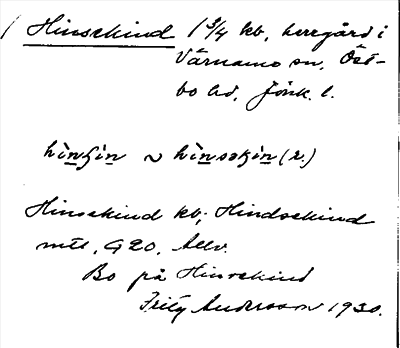 / Hinsekind 1 3/4 kb, herregård i
Värnamo sn, Öst-
bo hd, Jönk. l.
Hinsekind kb; Hindsekind
mtl, G20, Allv.
Bo på Hinsekind
Fritz Andersson 1930.